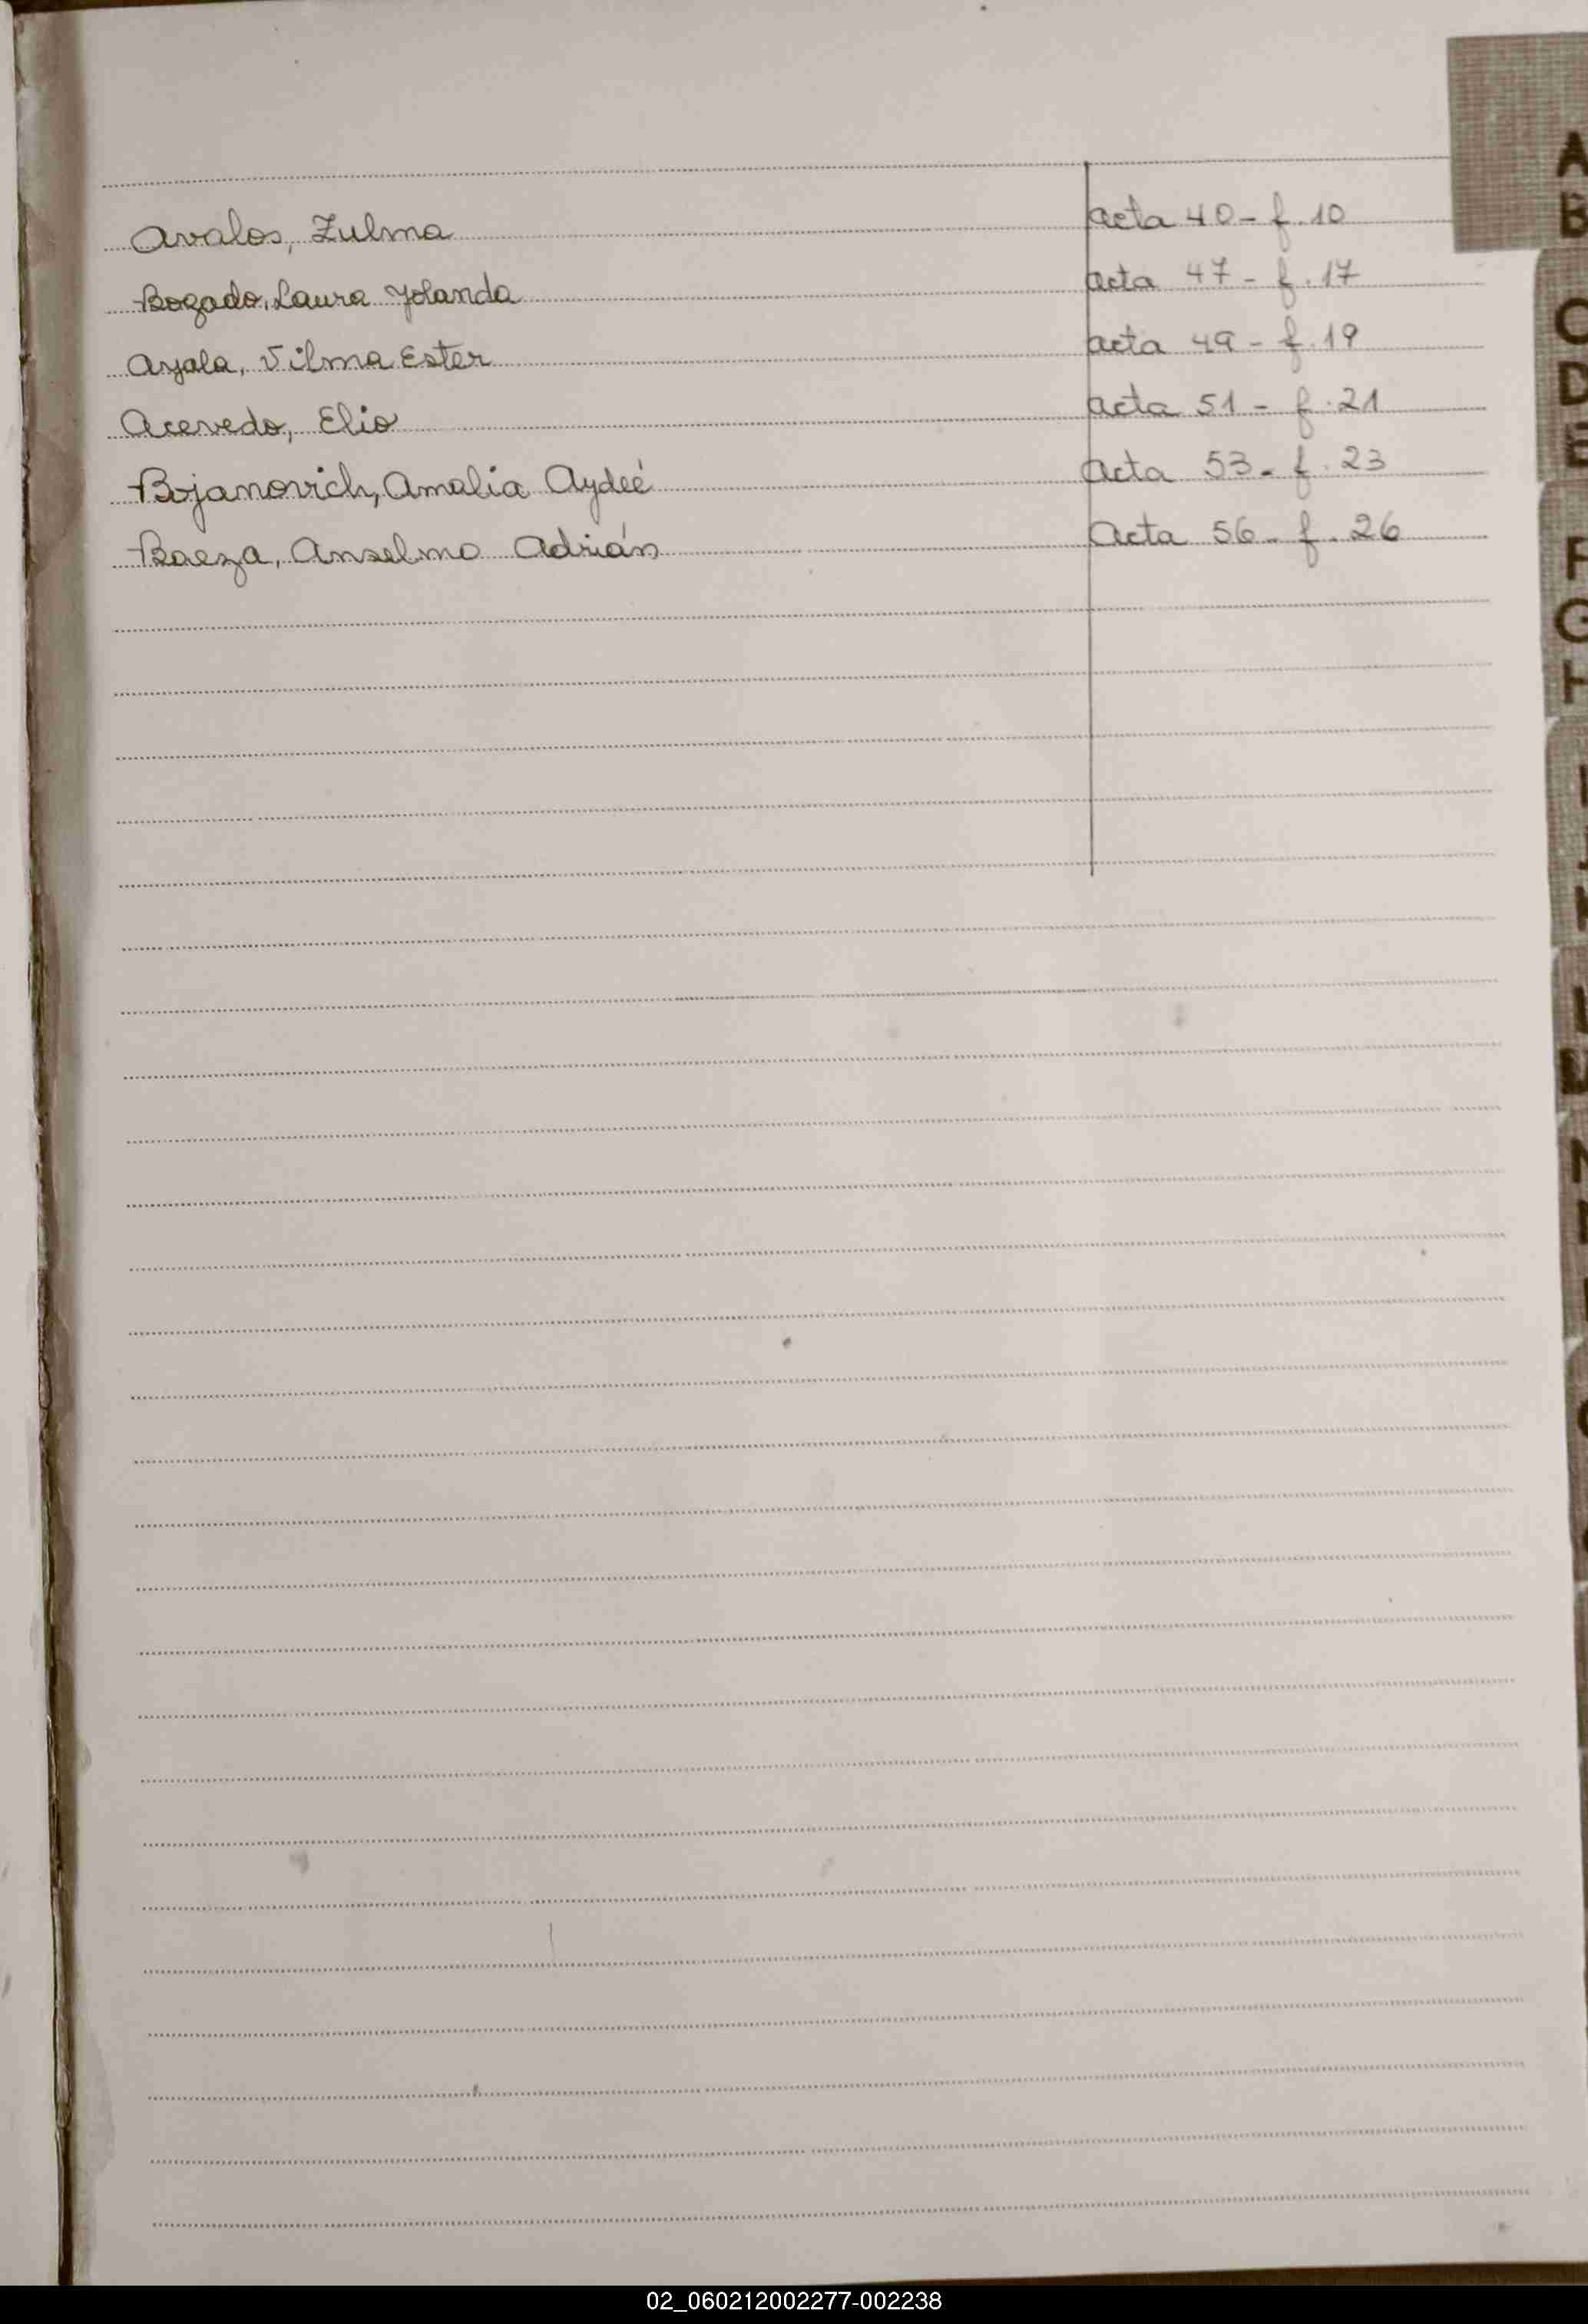 Avalos, Zulma acta 40 - f. 10
Bogado, Laura Yolanda acta 47 - f. 17
Ayala, Vilma Ester acta 49 - f. 19
Acevedo, Elio acta 51 - f. 21
Bojanovich, Amalia Aydeé acta 53 - f. 23
Baeza, Anselmo Adrián Acta 56 - f. 26
A
B
C
D
E
F
G
H
02_060212002277-002238